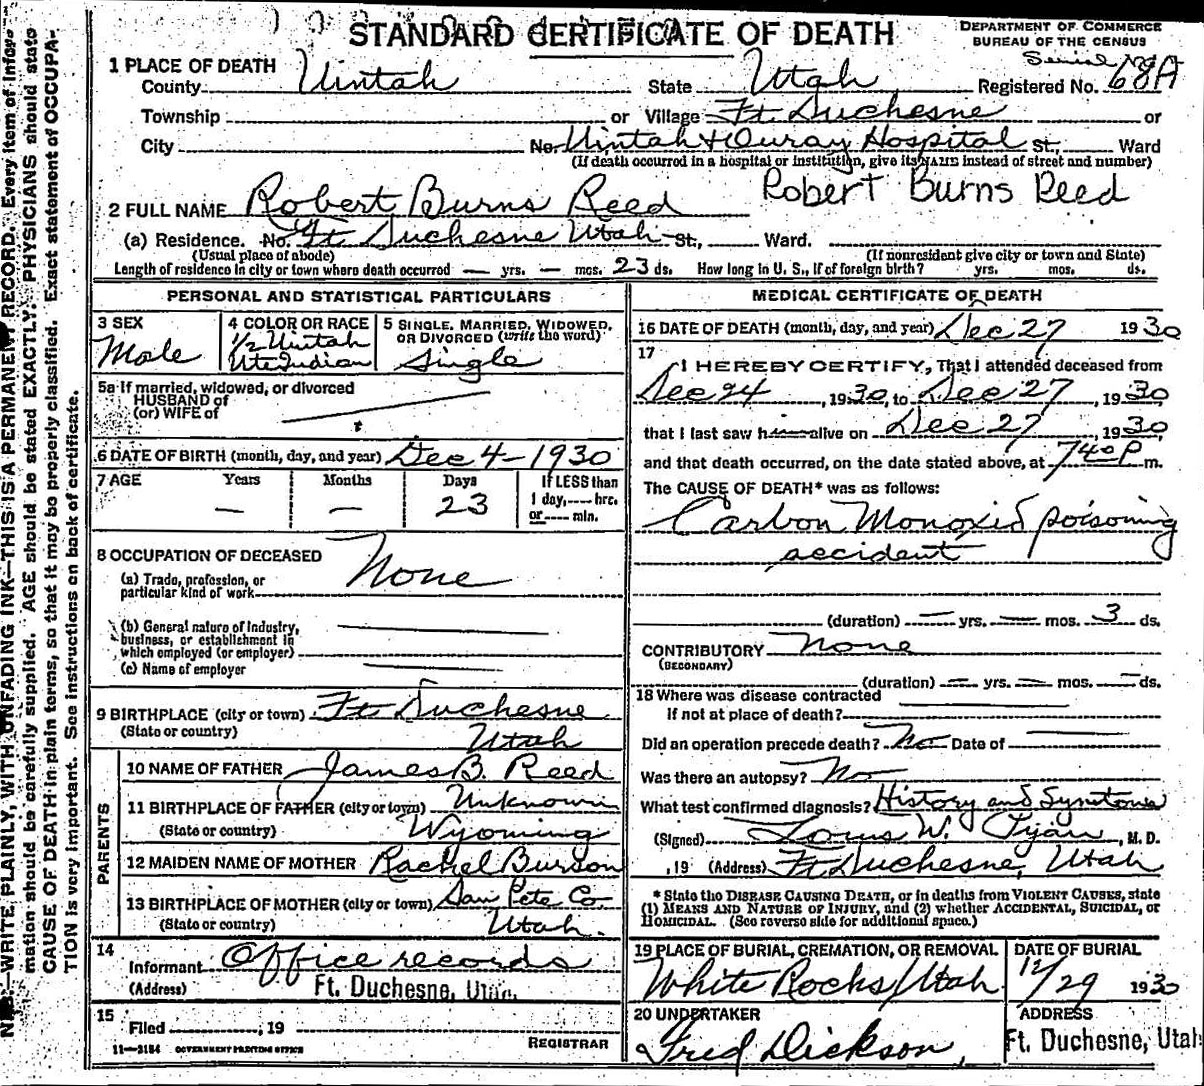 STANDARD CERTIFICATE OF DEATH
DEPARTMENT OF COMMERCE
BUREAU OF THE CENSUS
1 PLACE OF DEATH
Serial
County Uintah State Utah Registered No. 68A
Township or Village Ft. Duchesne or
City No. Uintah & Ouray Hospital St., Ward
(If death occurred in a hospital or institution, give its NAME instead of street and number)
2 FULL NAME Robert Burns Reed Robert Burns Reed
(a) Residence. No. Ft. Duchesne Utah St., Ward.
(Usual place of abode) (If nonresident give city or town and State)
Length of residence in city or town where death occurred — yrs. — mos. 23 ds. How long in U. S., if of foreign birth? yrs. mos. ds.
PERSONAL AND STATISTICAL PARTICULARS
3 SEX Male
4 COLOR OR RACE 1/2 Uintah Ute Indian
5 SINGLE, MARRIED, WIDOWED, OR DIVORCED (write the word) Single
5a If married, widowed, or divorced
HUSBAND of
(or) WIFE of
6 DATE OF BIRTH (month, day, and year) Dec 4-1930
7 AGE Years Months Days If LESS than
— — 23 1 day, ---- hrs.
or ---- min.
8 OCCUPATION OF DECEASED None
(a) Trade, profession, or
particular kind of work
(b) General nature of industry,
business, or establishment in
which employed (or employer)
(c) Name of employer
9 BIRTHPLACE (city or town) Ft Duchesne
(State or country) Utah
PARENTS
10 NAME OF FATHER James B. Reed
11 BIRTHPLACE OF FATHER (city or town) Unknown
(State or country) Wyoming
12 MAIDEN NAME OF MOTHER Rachel Burson
13 BIRTHPLACE OF MOTHER (city or town) San Pete Co
(State or country) Utah.
14
Informant Office records
(Address) Ft. Duchesne, Utah.
15
Filed , 19
REGISTRAR
11—3184 GOVERNMENT PRINTING OFFICE
MEDICAL CERTIFICATE OF DEATH
16 DATE OF DEATH (month, day, and year) Dec 27 1930
17
I HEREBY CERTIFY, That I attended deceased from
Dec 24, 1930, to Dec 27, 1930
that I last saw him alive on Dec 27, 1930
and that death occurred, on the date stated above, at 740 P m.
The CAUSE OF DEATH* was as follows:
Carbon Monoxid poisoning
accident
(duration) — yrs. — mos. 3 ds.
CONTRIBUTORY None
(SECONDARY)
(duration) — yrs. — mos. — ds.
18 Where was disease contracted
If not at place of death?
Did an operation precede death? No Date of
Was there an autopsy? No
What test confirmed diagnosis? History and Symtoms
(Signed) Louis W. , M. D.
, 19 (Address) Ft Duchesne, Utah
* State the DISEASE CAUSING DEATH, or in deaths from VIOLENT CAUSES, state
(1) MEANS AND NATURE OF INJURY, and (2) whether ACCIDENTAL, SUICIDAL, or
HOMICIDAL. (See reverse side for additional space.)
19 PLACE OF BURIAL, CREMATION, OR REMOVAL
White Rocks/Utah
DATE OF BURIAL
12/29 1930
20 UNDERTAKER
Fred Dickson,
ADDRESS
Ft. Duchesne, Utah
N. B.—WRITE PLAINLY, WITH UNFADING INK—THIS IS A PERMANENT RECORD. Every item of infor-
mation should be carefully supplied. AGE should be stated EXACTLY. PHYSICIANS should state
CAUSE OF DEATH in plain terms, so that it may be properly classified. Exact statement of OCCUPA-
TION is very important. See instructions on back of certificate.